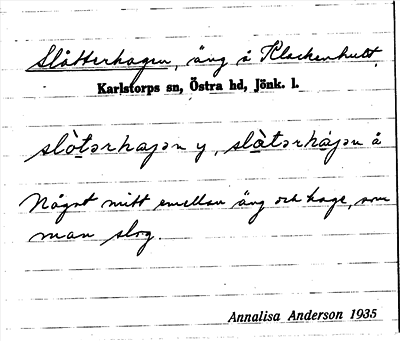 Slåtterhagen, äng å Klackenhult,
Karlstorps sn, Östra hd, Jönk. l.
slòtərhaɟən y, slàtərhàɟən å
Något mitt emellan äng och hage, som
man slog.
Annalisa Anderson 1935